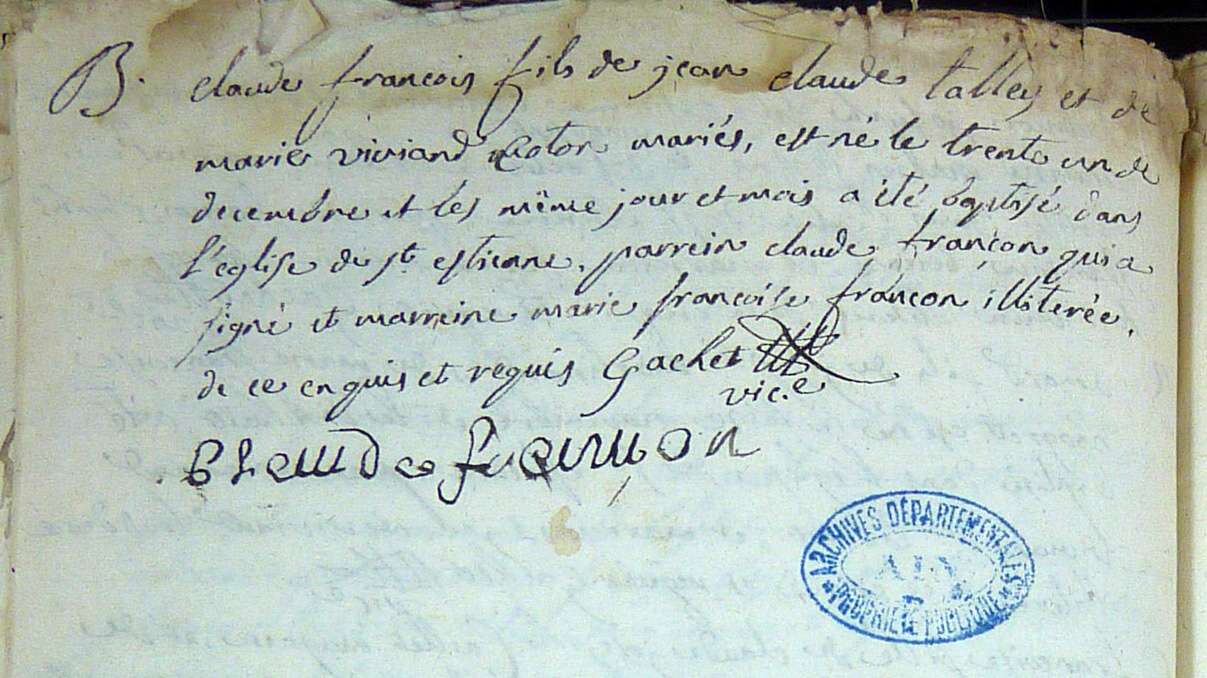 B. claude francois fils de jean claude talley et de
marie viviand Cotor mariés, est né le trente un de
decembre et les même jour et mois a été baptisé dans
l'église de st. estienne. parrein claude françon qui a
signé et marreine marie françoise françon illiterée,
de ce enquis et requis Gachet
vic.e
Claude françon
ARCHIVES DÉPARTEMENTALES
AIN
* PROPRIÉTÉ PUBLIQUE *